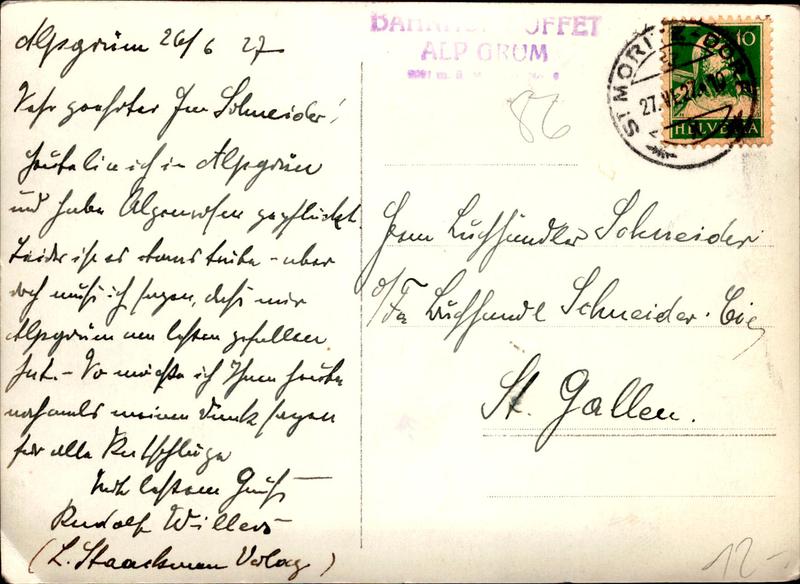 Alpgrüm 26/6 27
Sehr geehrter Herr Schneider!
heute bin ich in Alpgrüm
und habe Alpenrosen gepflückt.
Leider ist es etwas trübe - aber
doch muß ich sagen, daß mir
Alpgrüm am besten gefallen
hat. - So möchte ich Ihnen heute
nochmals meinen Dank sagen
für alle Ratschläge
Mit bestem Gruß
Rudolf Willers
(L. Staackmann Verlag)
BAHNHOFBUFFET
ALP GRÜM
86
ST MORITZ-DORF
27.VI.27
10
HELVETIA
Herrn Buchhändler Schneider
i/Fa Buchhandl Schneider. Cie
St. Gallen.
12-